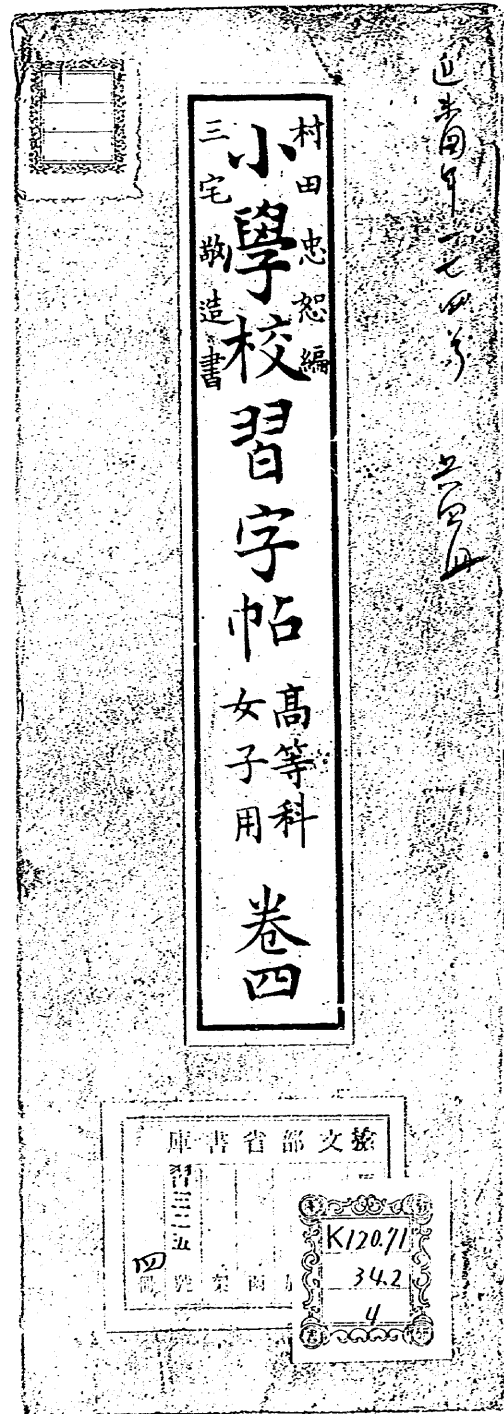 村田忠恕編
三宅敬造書
小學校習字帖
高等科
女子用
卷四
共四冊
文部省書庫
習三二五
四
K120.71
34.2
4